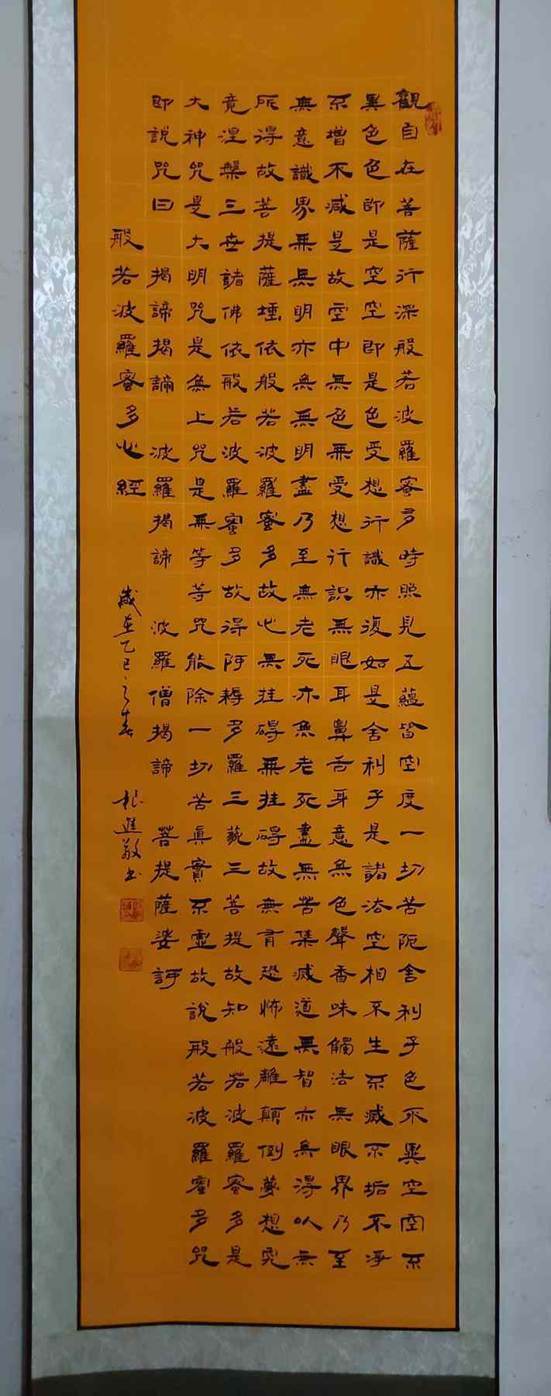 觀自在菩薩行深般若波羅蜜多時照見五蘊皆空度一切苦阨舍利子色不異空空不
異色色即是空空即是色受想行識亦復如是舍利子是諸法空相不生不滅不垢不淨
不增不減是故空中無色無受想行識無眼耳鼻舌身意無色聲香味觸法無眼界乃至
無意識界無無明亦無無明盡乃至無老死亦無老死盡無苦集滅道無智亦無得以無
所得故菩提薩埵依般若波羅蜜多故心無挂礙無挂礙故無有恐怖遠離顛倒夢想究
竟涅槃三世諸佛依般若波羅蜜多故得阿耨多羅三藐三菩提故知般若波羅蜜多是
大神咒是大明咒是無上咒是無等等咒能除一切苦真實不虛故說般若波羅蜜多咒
即說咒曰 揭諦揭諦 波羅揭諦 波羅僧揭諦 菩提薩婆訶
般若波羅蜜多心經 歲在乙巳之春 進敬書